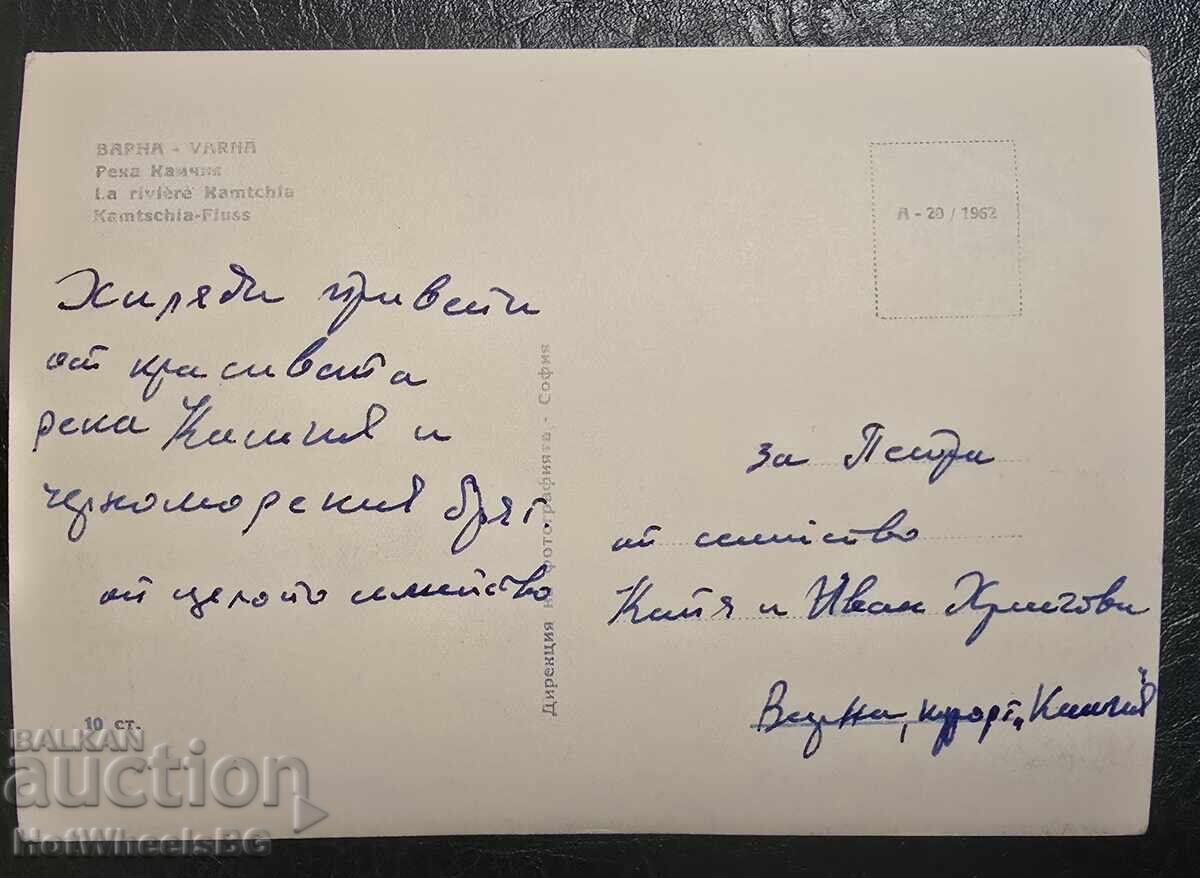 ВАРНА - VARNA
Река Камчия
La rivière Kamtchia
Kamtschia-Fluss
А - 20 / 1962
Хиляди привети
от красивата
река Камчия и
черноморския бряг.
от цялото семейство
Дирекция на фотографията - София
за Петри
от семейство
Катя и Иван Христови
Варна, курорт „Камчия"
10 ст.
BALKAN
auction
HotWheelsBG